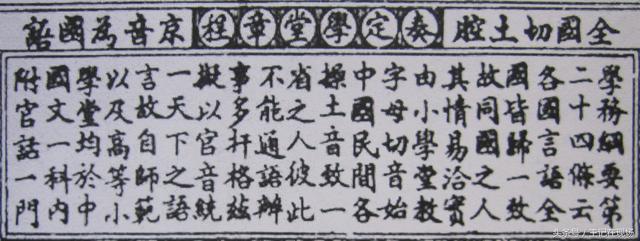 全國切土腔 奏定學堂章程 京音為國語
學務綱要第
二十四條云
各國言語全
國皆歸一致
故同國之人
其情易洽實
由小學堂教
字母切音始
中國民間各
操土音致一
省之人彼此
不能通語辦
事多扞格茲
擬以官音統
一天下之語
言故自師範
以及高等小
學堂均於中
國文一科內
附官話一門
头条号 / 记在现场